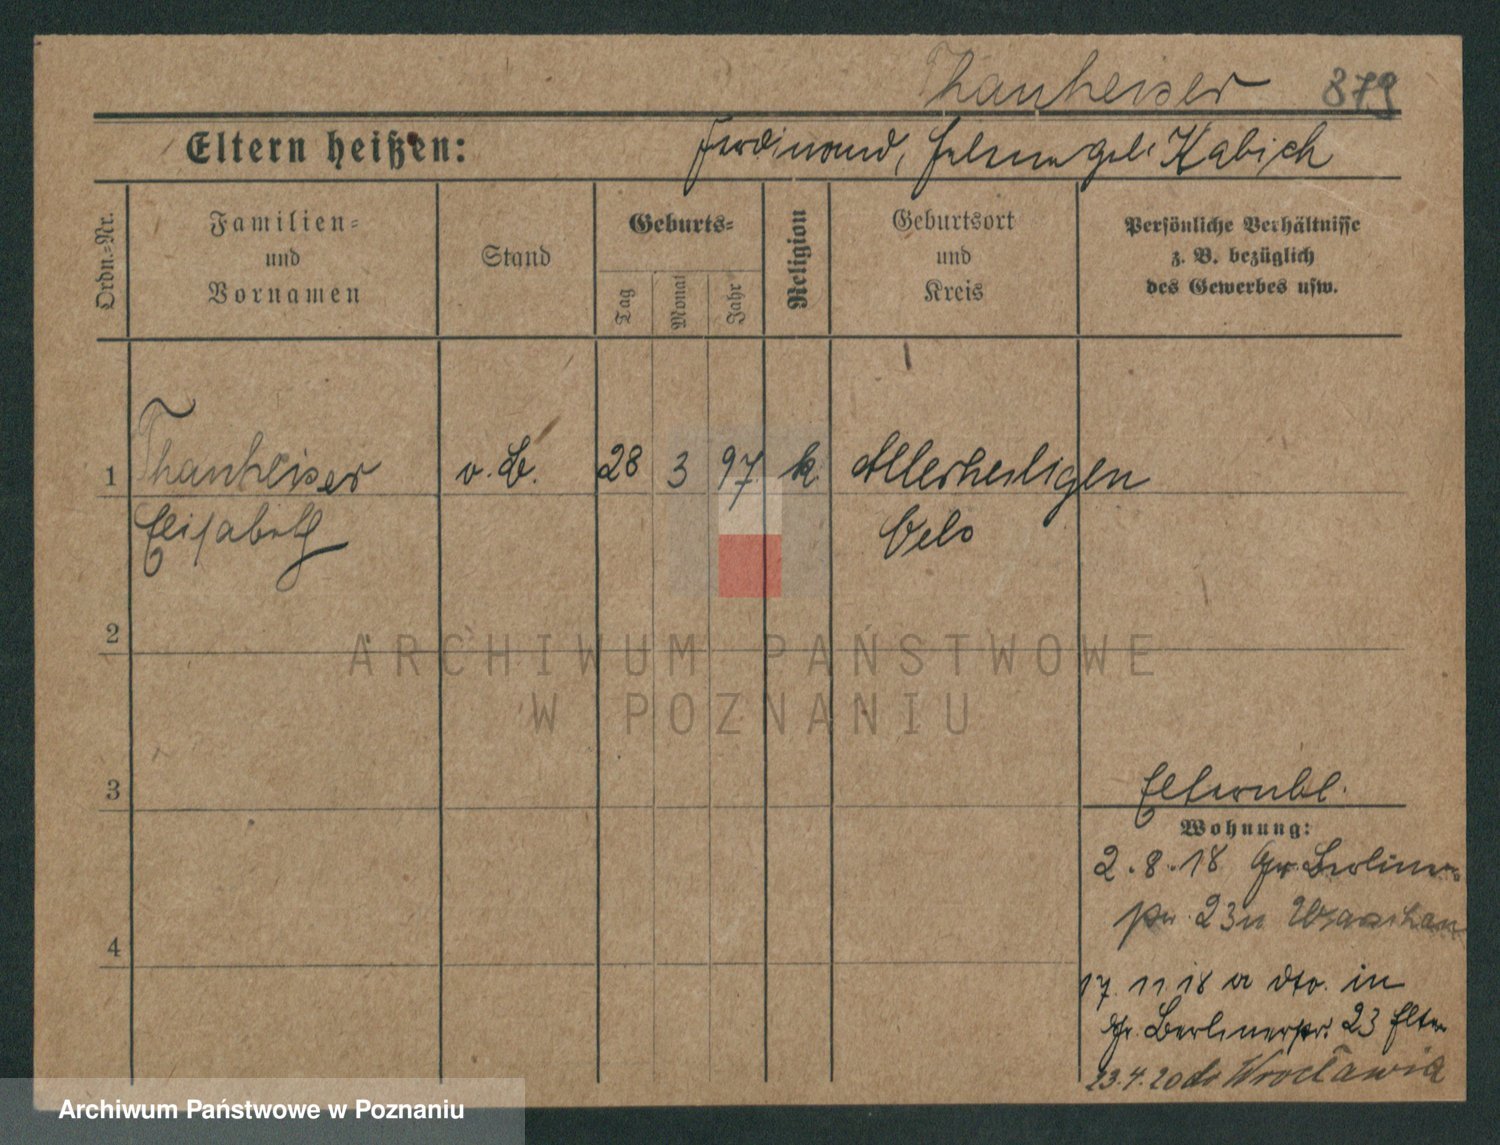 Thanheiser 879
Eltern heißen: Ferdinand, geb. Kabich
Ordn.=Nr.
Familien=
und
Vornamen
Stand
Geburts=
Tag
Monat
Jahr
Religion
Geburtsort
und
Kreis
Persönliche Verhältnisse
z. B. bezüglich
des Gewerbes usw.
1 Thanheiser o. B. 28 3 97 k Allerheiligen
Elisabeth Oels
2
ARCHIWUM PAŃSTWOWE
W POZNANIU
3
Elternbl.
Wohnung:
2.8.18 Gr. Berliner-
23
4
17. 11 18 dto. in
Gr. Berlinerstr. 23 Eltern
23.4.20 do Wrocławia
Archiwum Państwowe w Poznaniu